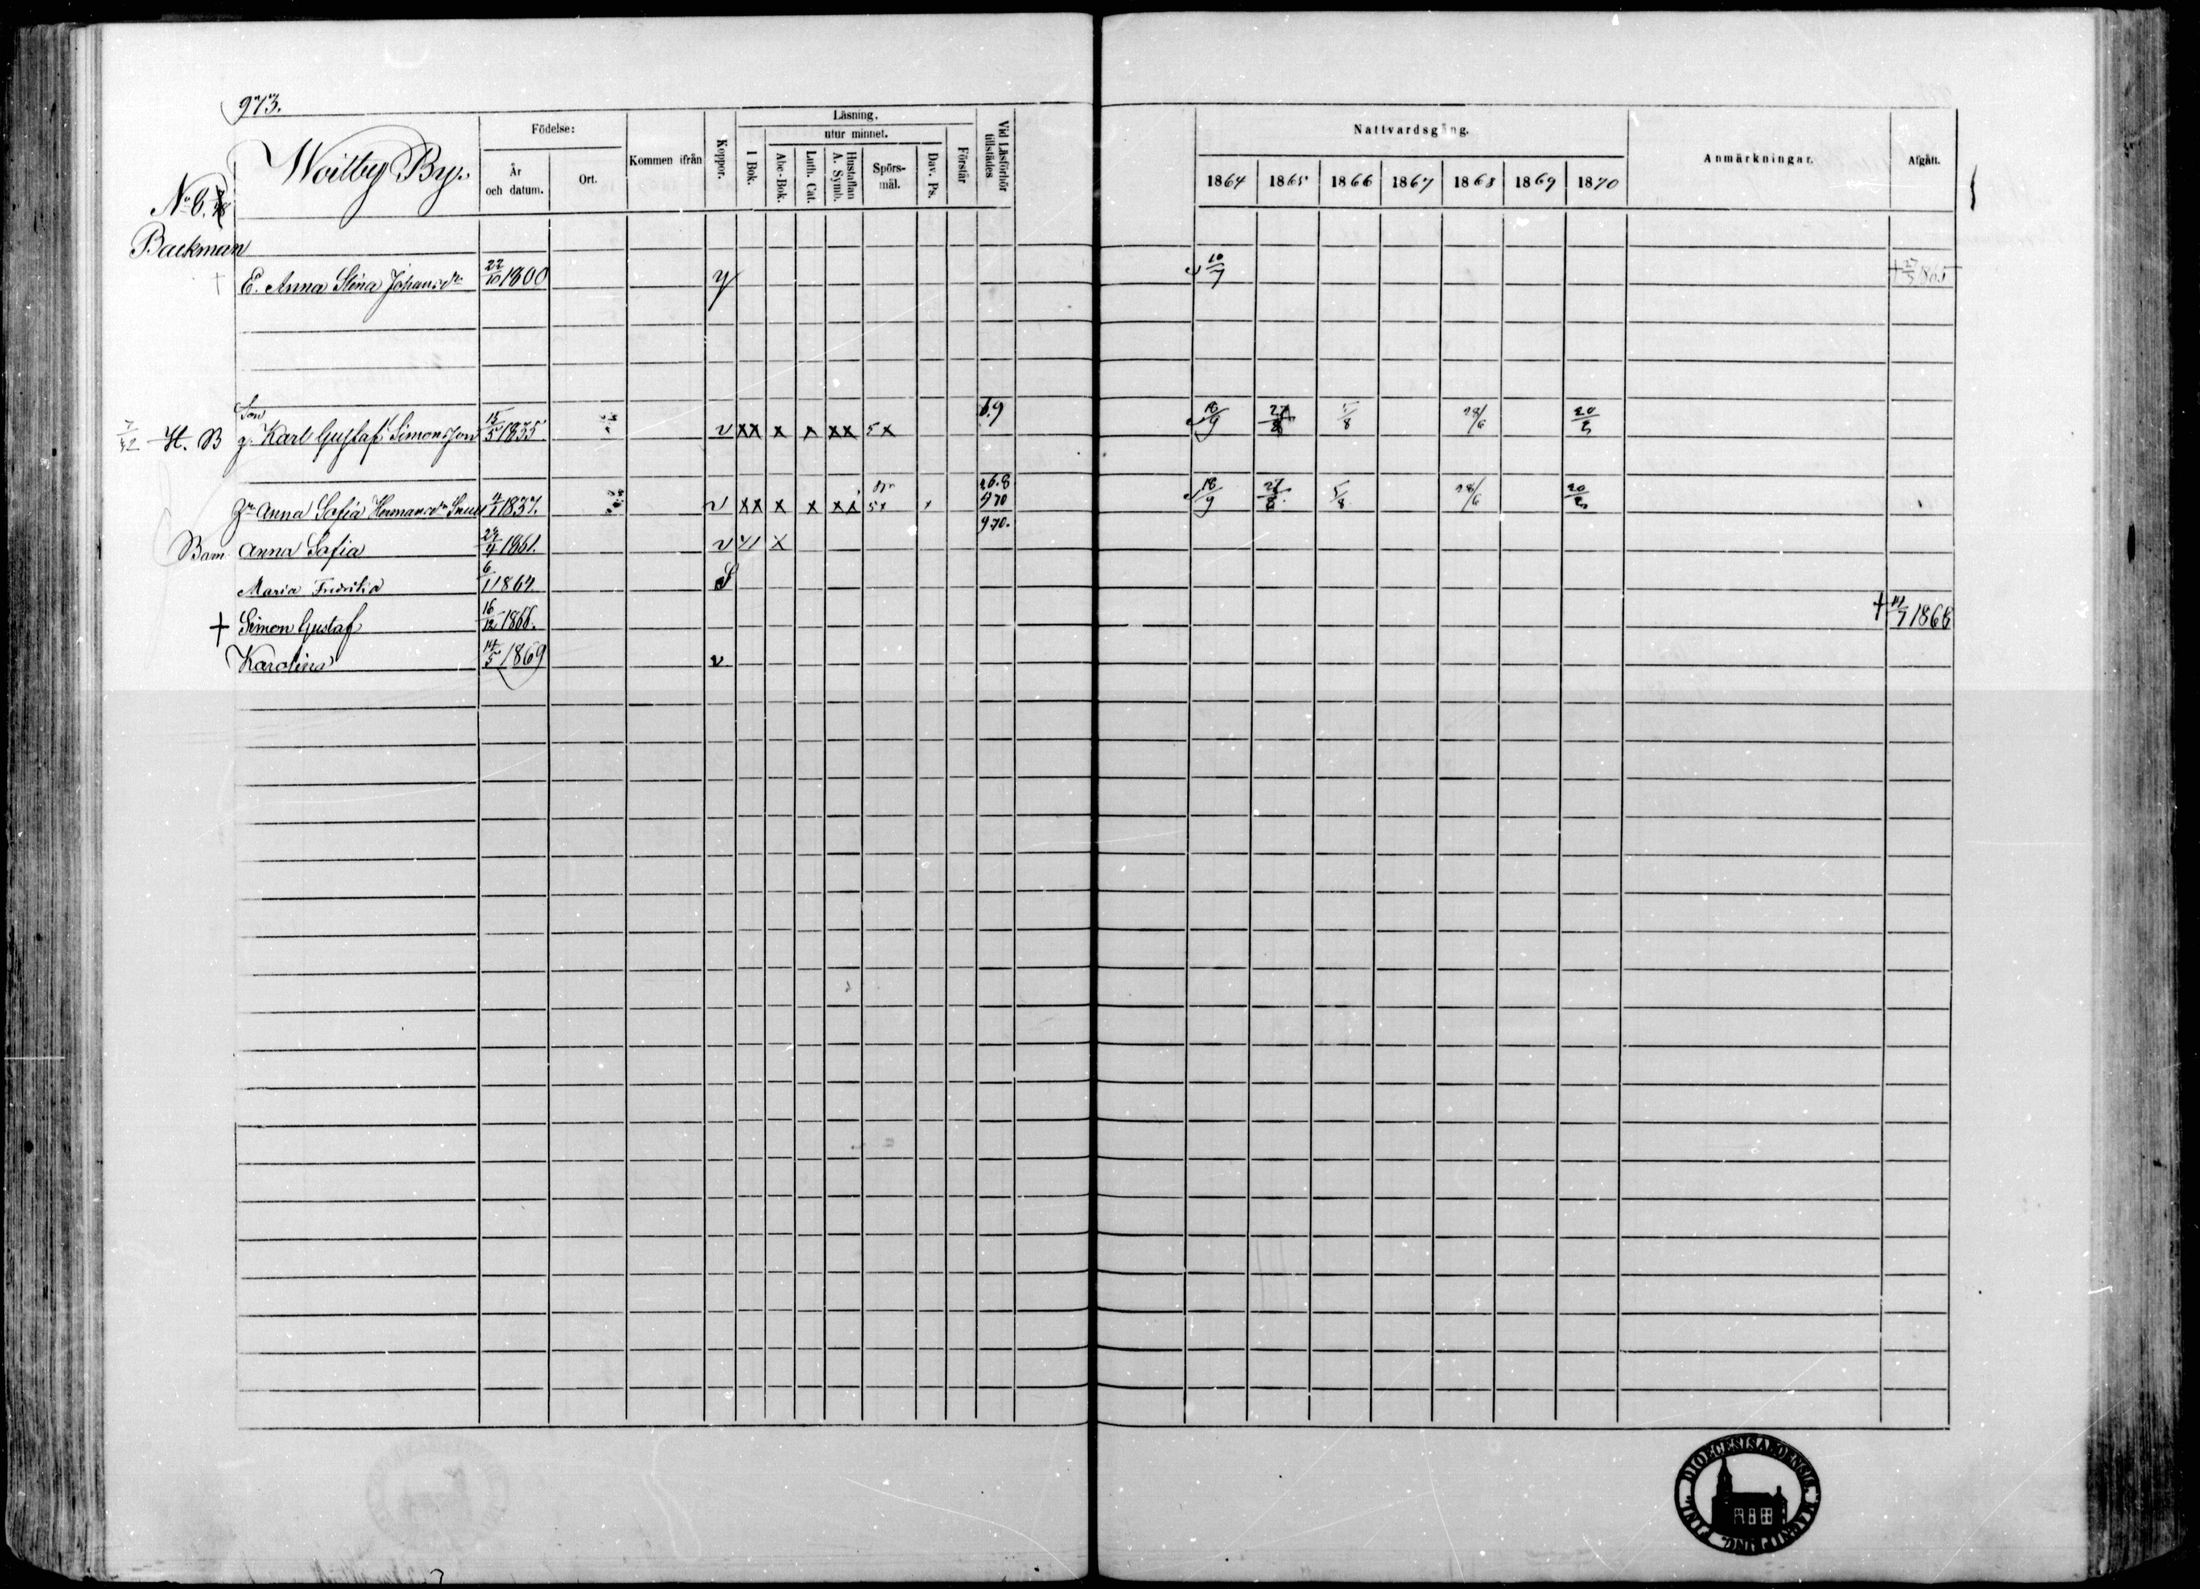 973.
Woitby By.
No 6.
Födelse:
År och datum.
Ort.
Kommen ifrån
Koppor.
Läsning.
utur minnet.
I Bok.
Abc-Bok.
Luth. Cat.
Hustaflan A. Symb.
Spörsmål.
Dav. Ps.
Förstår
Vid Läsförhör tillstädes
Nattvardsgång.
1864 1865 1866 1867 1868 1869 1870
Anmärkningar.
Afgått.
Backman
E. Anna Stina Johansdr 22/10 1800 y 10/7 + 27/5 1865
Son 6.9
H. B g. Karl Gustaf Simonsson 15/5 1835 v xx x x xx 5x 18/9 27/8 5/8 28/6 20/2
26.8
Anna Sofia Hermansdr 4/1 1837. v xx x x xx 5x 970 18/9 27/8 5/8 28/6 20/2
970.
Barn Anna Sofia 24/4 1861. v x
Maria Fredrika 6/1 1864 S
+ Simon Gustaf 16/12 1866. + 14/7 1868
Karolina 14/5 1869 v
DIOECESIS ABOENSIS MAGNI DUC. FINL.